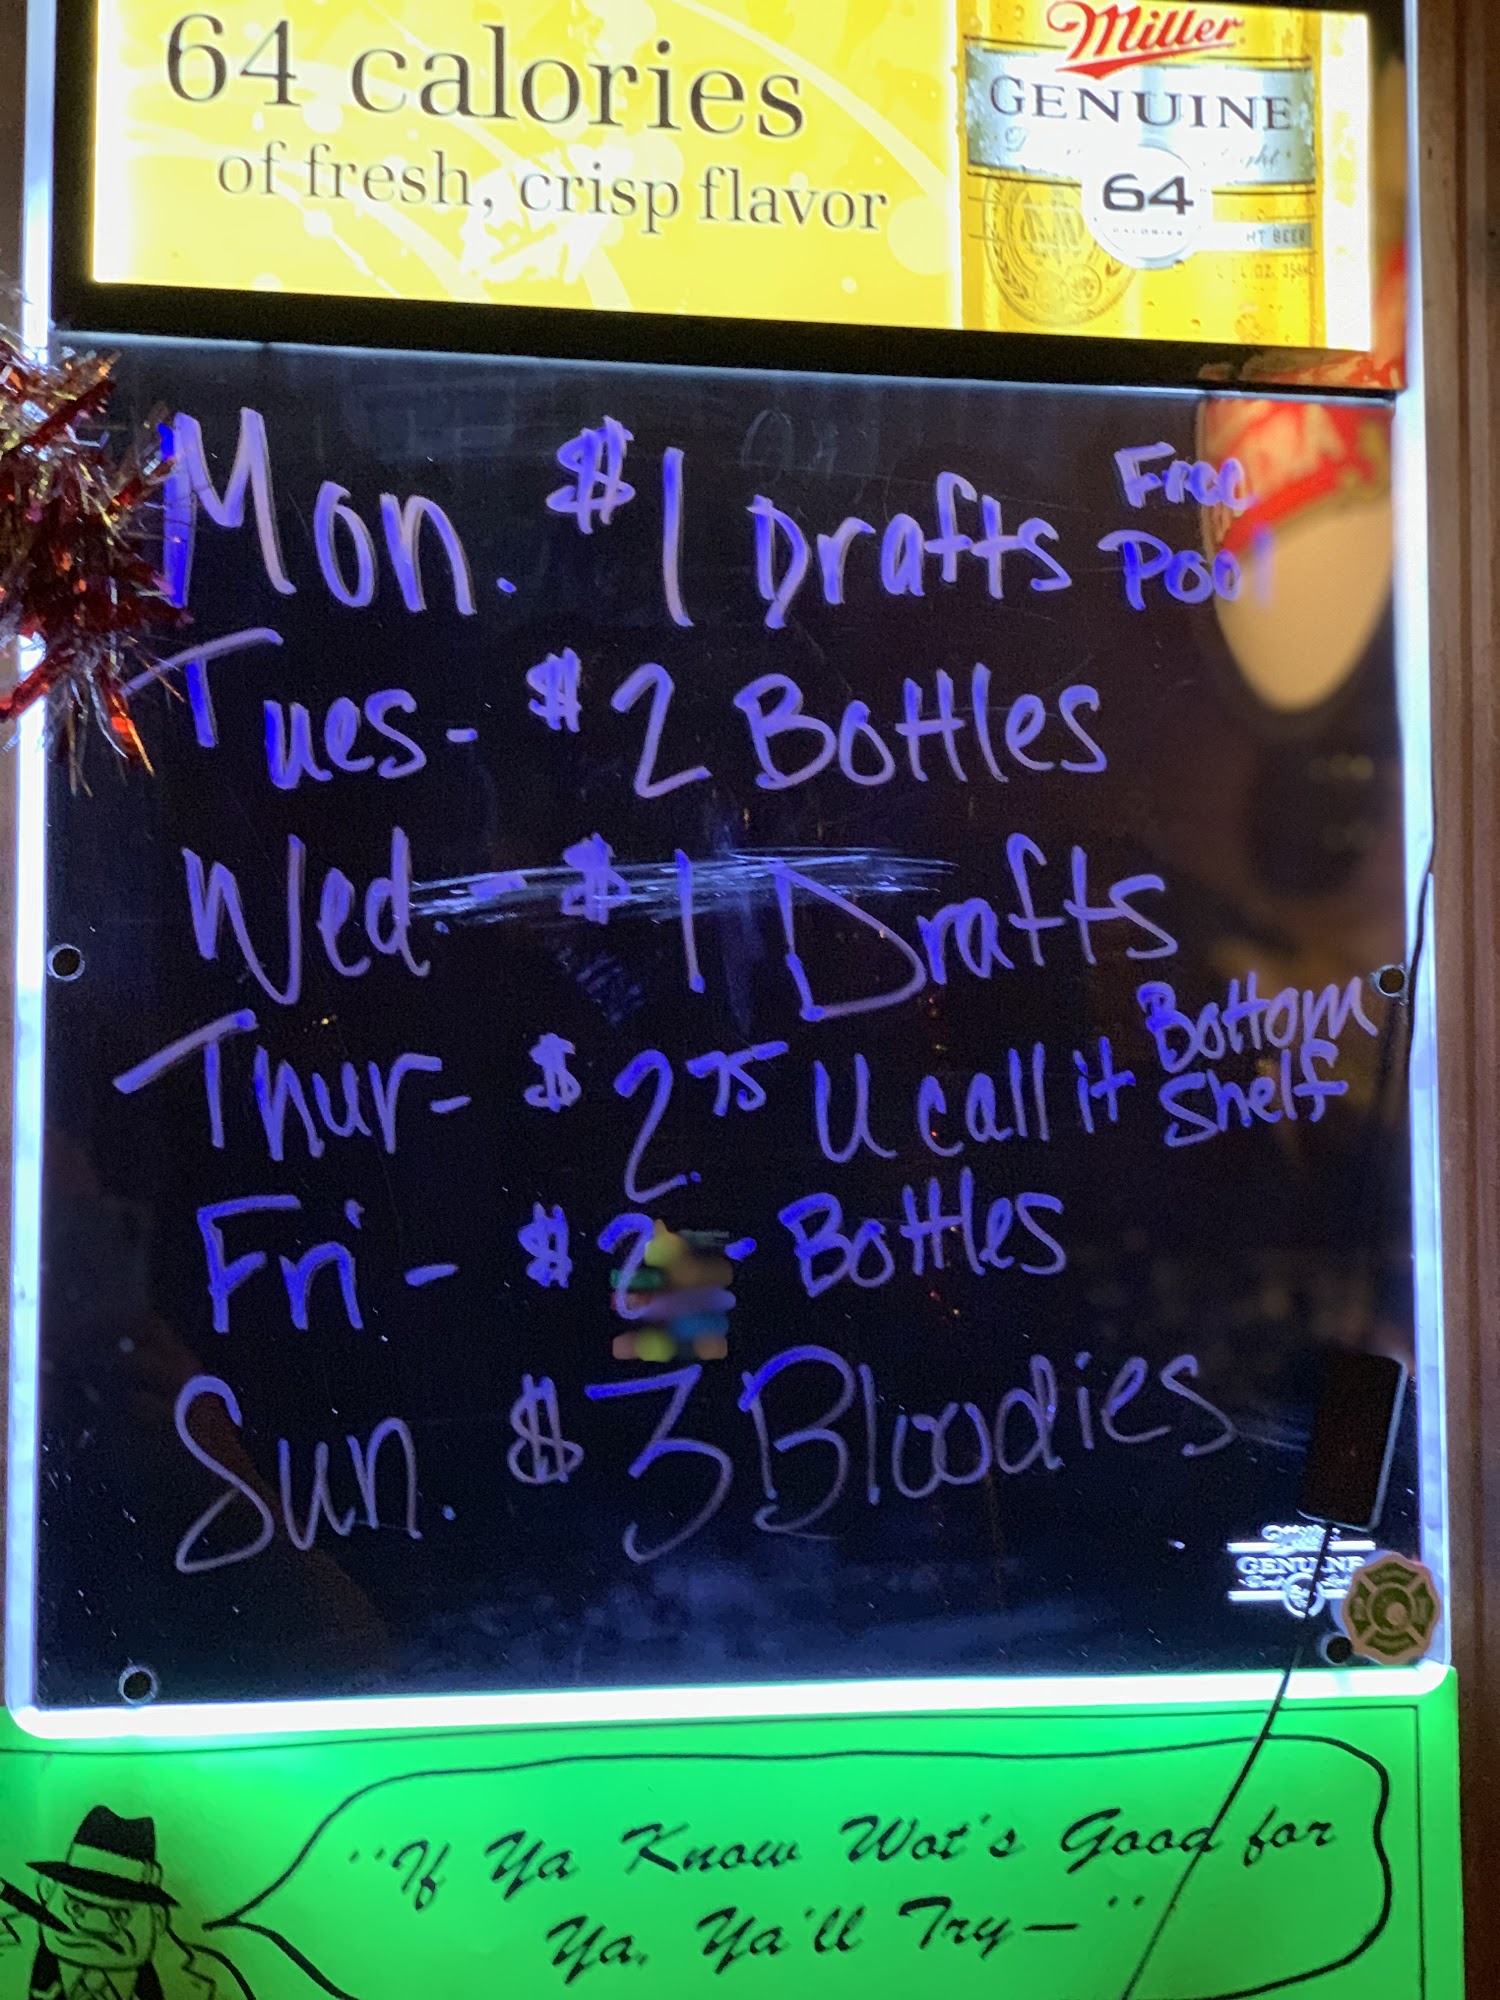 64 calories
of fresh, crisp flavor
Miller
GENUINE
64
CALORIES
HT BEER
Mon. $1 Drafts Free Pool
Tues - $2 Bottles
Wed. - $1 Drafts
Thur - $2.75 U call it Bottom Shelf
Fri - $2 - Bottles
Sun. $3 Bloodies
Miller
GENUINE
"If Ya Know Wot's Good for
Ya, Ya'll Try—"